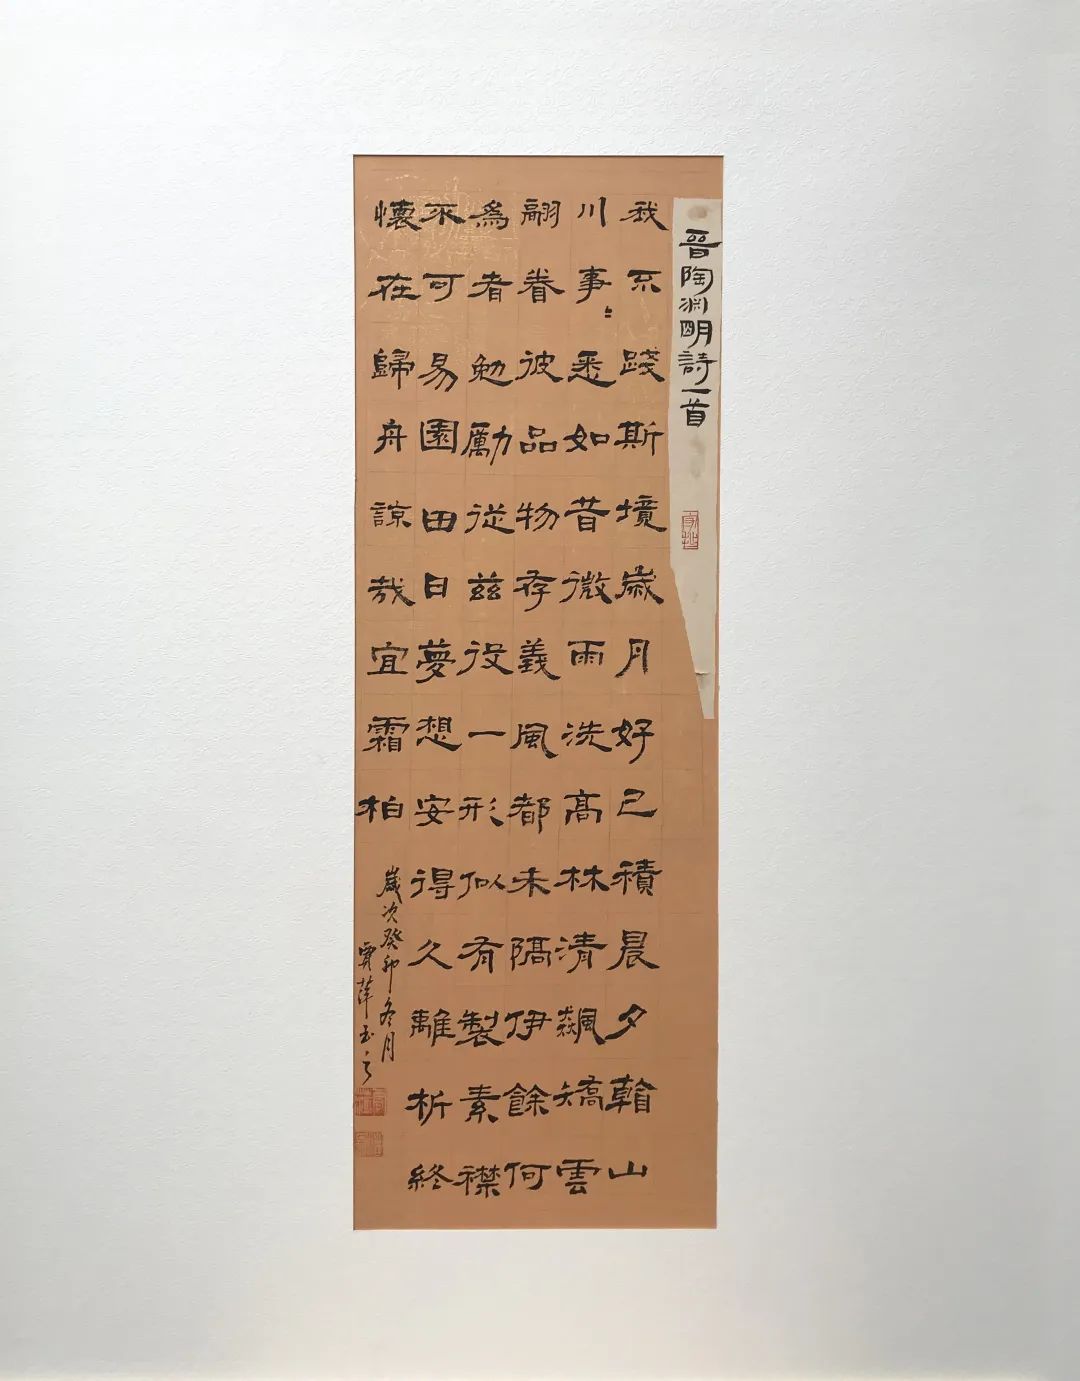 晉陶渊明詩一首
我不踐斯境歲月好已積晨夕看山
川事〻悉如昔微雨洗高林清飆矯雲
翮眷彼品物存義風都未隔伊餘何
為者勉勵從茲役一形似有製素襟
不可易園田日夢想安得久離析終
懷在歸舟諒哉宜霜柏
歲次癸卯冬月
賈萍书之